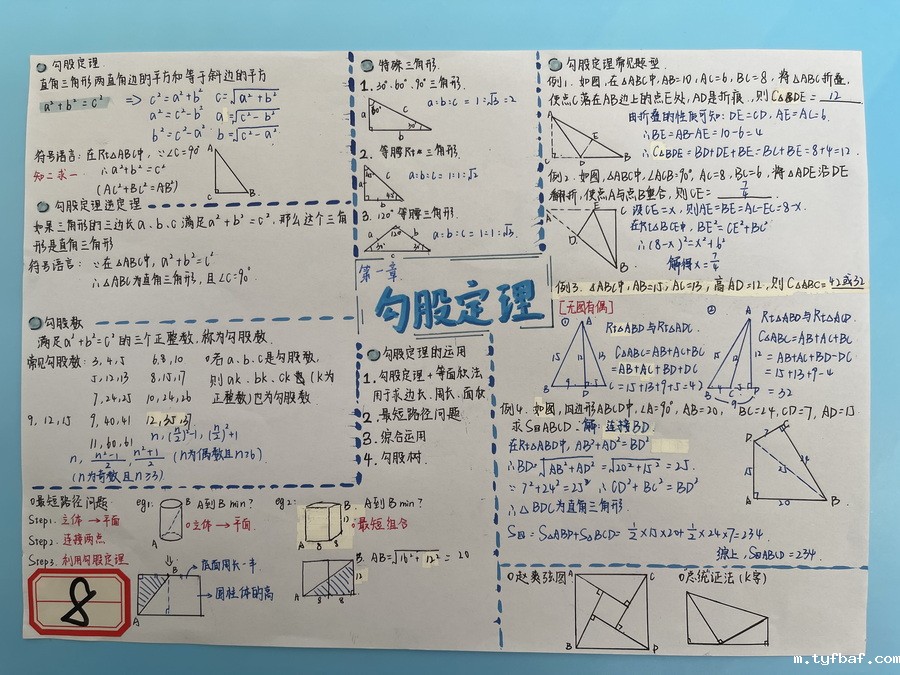 勾股定理
直角三角形两直角边的平方和等于斜边的平方
a²+b²=c² ⇒ c²=a²+b² c=√a²+b²
a²=c²-b² a=√c²-b²
b²=c²-a² b=√c²-a²
符号语言：在Rt△ABC中，∵∠C=90°
知二求一 ∴a²+b²=c²
(AC²+BC²=AB²)
A
C B
勾股定理逆定理
如果三角形的三边长a、b、c满足a²+b²=c²，那么这个三角
形是直角三角形
符号语言：∵在△ABC中，a²+b²=c²
∴△ABC为直角三角形，且∠C=90°
勾股数
满足a²+b²=c²的三个正整数，称为勾股数
常见勾股数：3,4,5 6,8,10 若a、b、c是勾股数，
5,12,13 8,15,17 则ak、bk、ck也(k为
7,24,25 10,24,26 正整数)也为勾股数
9,12,15 9,40,41 12,35,37
11,60,61 n,(n/2)²-1,(n/2)²+1
n, n²-1/2, n²+1/2 (n为偶数且n≥6)
(n为奇数且n≥3)
最短路径问题
Step1. 立体→平面
Step2. 连接两点
Step3. 利用勾股定理
8
eg1: B A到B min?
立体→平面
A
B
底面周长一半
圆柱体的高
A
eg2: B A到B min?
最短组合
A 8 8
B. AB=√16²+12² = 20
12
A 8 8
特殊三角形
1. 30°60°90°三角形
a:b:c=1:√3:2
a c 30° b
2. 等腰Rt三角形
a:b:c=1:1:√2
a c 45° b
3. 120°等腰三角形
a:b:c=1:1:√3
a 120° b
30° 30°
c
第一章
勾股定理
勾股定理的运用
1. 勾股定理+等面积法
用于求边长、周长、面积
2. 最短路径问题
3. 综合运用
4. 勾股树.
勾股定理常见题型
例1. 如图，在△ABC中，AB=10，AC=6，BC=8，将△ABC折叠，
使点C落在AB边上的点E处，AD是折痕，则C△BDE= 12
由折叠的性质可知：DE=CD，AE=AC=6.
∴BE=AB-AE=10-6=4
∴C△BDE=BD+DE+BE=BC+BE=8+4=12.
A E C D B
例2. 如图，△ABC中，∠ACB=90°，AC=8，BC=6，将△ADE沿DE
翻折，使点A与点B重合，则CE= 7/4
设CE=x，则AE=BE=AC-EC=8-x.
在Rt△BCE中，BE²=CE²+BC²
∴(8-x)²=x²+6²
解得x=7/4
A E C D B
例3. △ABC中，AB=15，AC=13，高AD=12，则C△ABC= 42或32
[无图有偶]
① A Rt△ABD与Rt△ADC.
C△ABC=AB+AC+BC
=AB+AC+BD+DC
=15+13+9+5=42
15 12 13
B 9 D 5 C
② A Rt△ABD与Rt△ACD.
C△ABC=AB+AC+BC
=AB+AC+BD-DC
=15+13+9-4
=32
15 12
B C 5 D
9
例4. 如图，四边形ABCD中，∠A=90°，AB=20，BC=24，CD=7，AD=15
求S四ABCD. 解：连接BD.
在Rt△ABD中，AB²+AD²=BD²
∴BD=√AB²+AD²=√20²+15²=25.
∵7²+24²=25² ∴CD²+BC²=BD²
∴△BDC为直角三角形.
S四=S△ABD+S△BCD=1/2×15×20+1/2×24×7=234.
综上，S四ABCD=234.
D 7 C
15 25 24
A 20 B
赵爽弦图
A C
B D
总统证法(K字)
m.tyfbaf.com